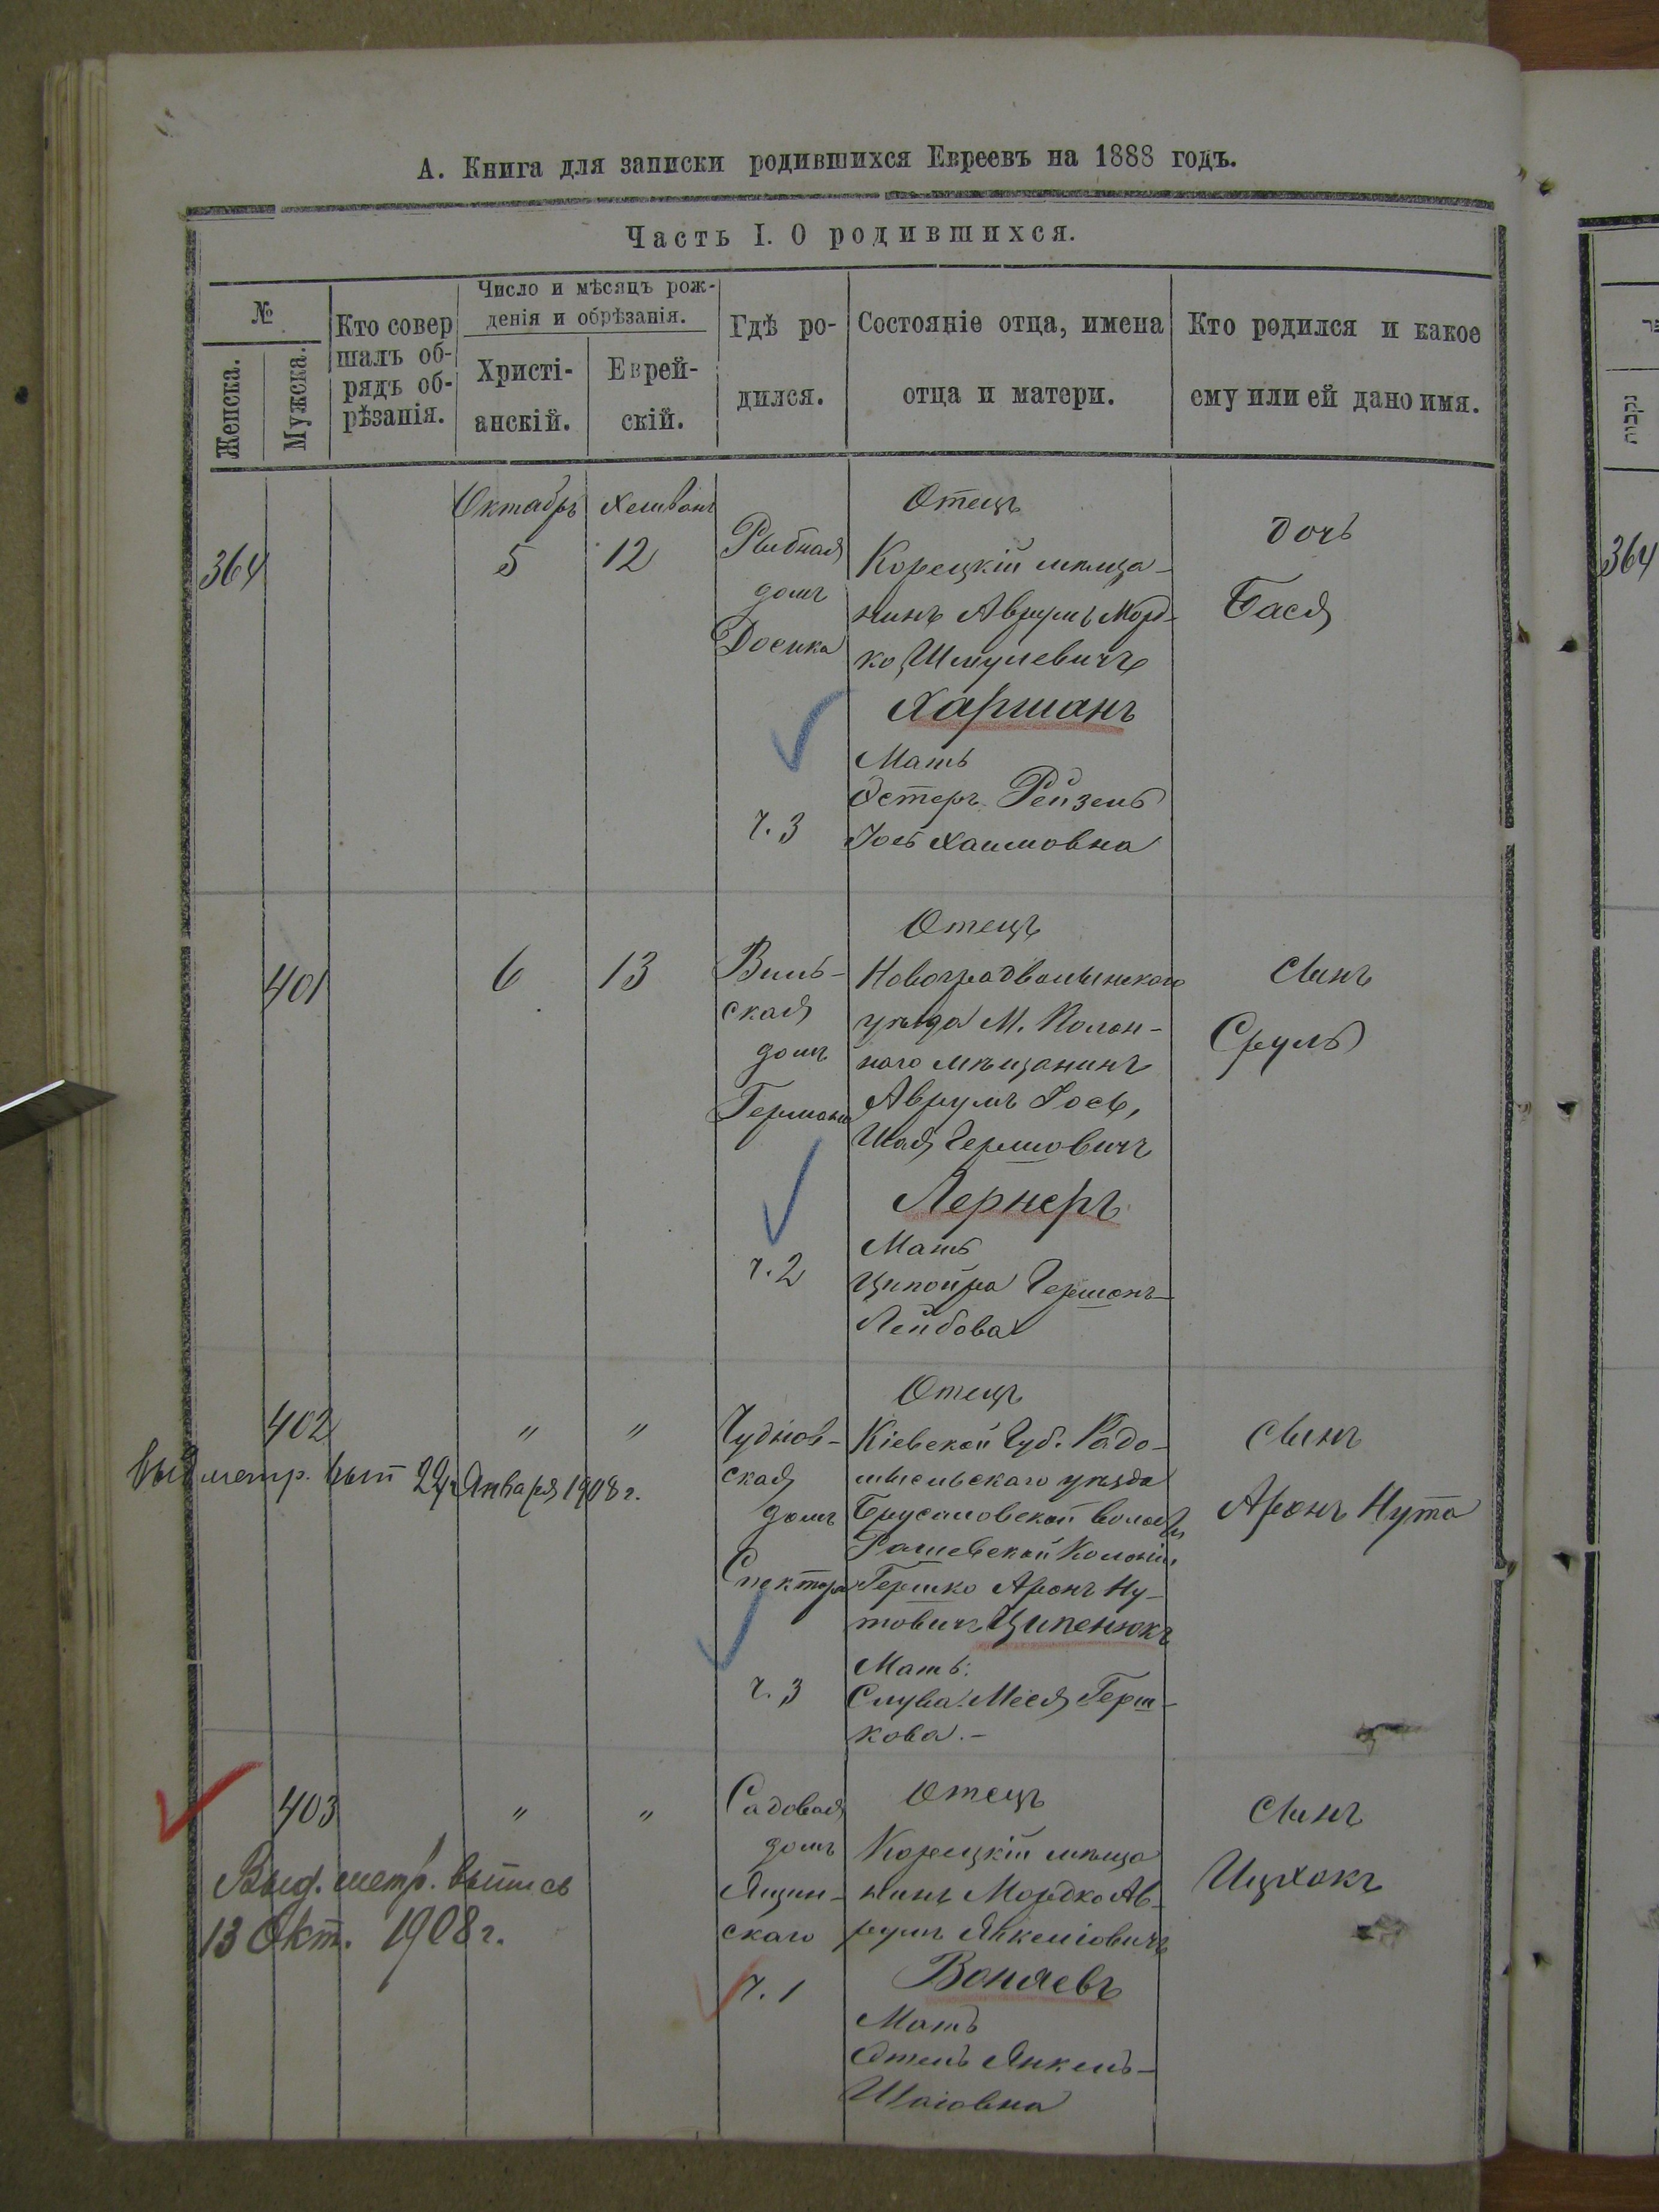 А. Книга для записки родившихся Евреевъ на 1888 годъ.
Часть I. О родившихся.
№
Женска.
Мужска.
Кто совер
шалъ об-
рядъ об-
рѣзанія.
Число и мѣсяцъ рож-
денія и обрѣзанія.
Христі-
анскій.
Еврей-
скій.
Гдѣ ро-
дился.
Состояніе отца, имена
отца и матери.
Кто родился и какое
ему или ей дано имя.
364
Октябрь
5
Хешванъ
12
Рыбная
домъ
Досика
ч. 3
Отецъ
Корецкій мѣща-
нинъ Аврумъ Морд-
ко Шмулевичъ
Харшанъ
Мать
Эстеръ Рейзель
Іось Хаимовна
Дочь
Бася
401
6
13
Виль-
ская
домъ
Германа
ч. 2
Отецъ
Новоградволынскаго
уѣзда М. Полон-
наго мѣщанинъ
Аврумъ Іось,
Шая Гершовичъ
Лернеръ
Мать
Ципойра Гершонъ-
Лейбова
Сынъ
Сруль
402
"
"
Выд метр. вып 24 Января 1908 г.
Чуднов-
ская
домъ
Спектора
ч. 3
Отецъ
Кіевской Губ. Радо-
мысльскаго уѣзда
Брусиловской волости
Рашевской Колоніи
Гершко Аронъ Ну-
товичъ Ципенюкъ
Мать:
Слува Меся Герш-
кова. -
Сынъ
Аронъ Нута
403
"
"
Выд. метр. выпись
13 Окт. 1908 г.
Садовая
домъ
Ящин-
скаго
ч. 1
Отецъ
Корецкій мѣща
нинъ Мордко Ав-
румъ Янкеліовичъ
Воняевъ
Мать
Этель Янкель-
Шаіовна
Сынъ
Ицхокъ
נקבות
364